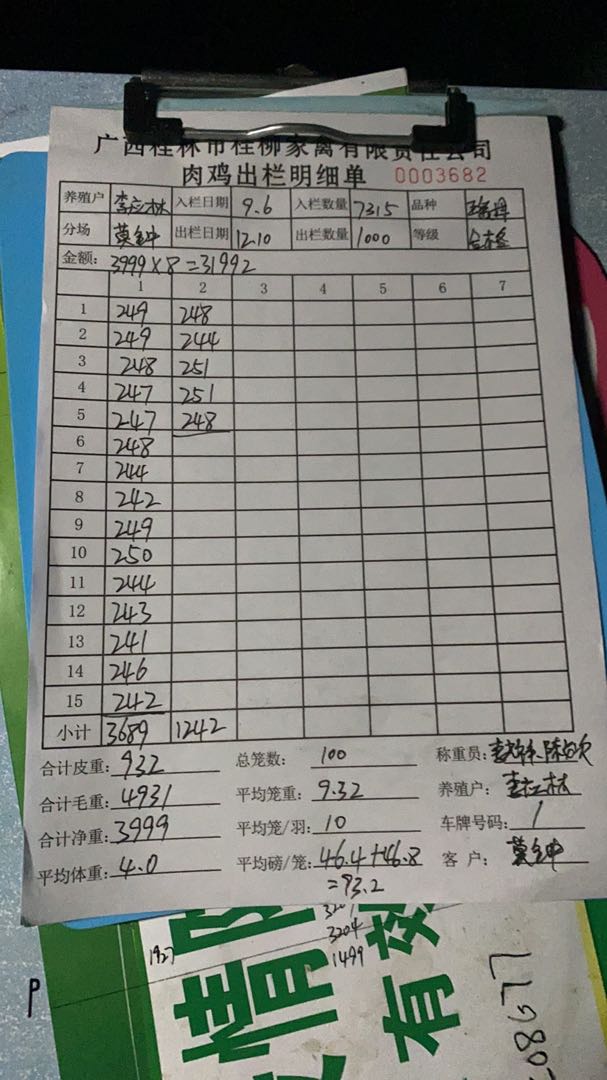 广西桂林市桂柳家禽有限责任公司
肉鸡出栏明细单 0003682
养殖户 李应林 入栏日期 9.6 入栏数量 7315 品种
分场 莫金中 出栏日期 12.10 出栏数量 1000 等级 合格
金额: 3999×8=31992
1 2 3 4 5 6 7
1 249 248
2 249 244
3 248 251
4 247 251
5 247 248
6 248
7 244
8 242
9 249
10 250
11 244
12 243
13 241
14 246
15 242
小计 3689 1242
合计皮重: 932 总笼数: 100 称重员:
合计毛重: 4931 平均笼重: 9.32 养殖户:
合计净重: 3999 平均笼/羽: 10 车牌号码: 1
平均体重: 4.0 平均磅/笼: 46.4+46.8 客户: 莫金中
=93.2
3204
1927 1499
P
有效